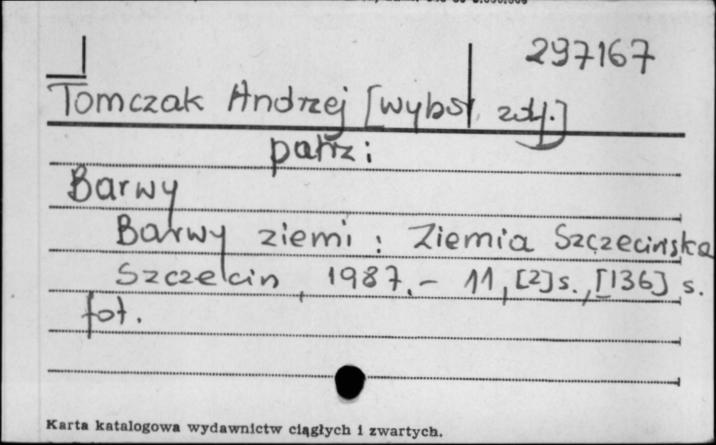 297167
Tomczak Andrzej [wybór zdj.]
patrz:
Barwy
Barwy ziemi : Ziemia Szczecińska
Szczecin, 1987.- 11, [2] s., [136] s.
fot.
Karta katalogowa wydawnictw ciągłych i zwartych.